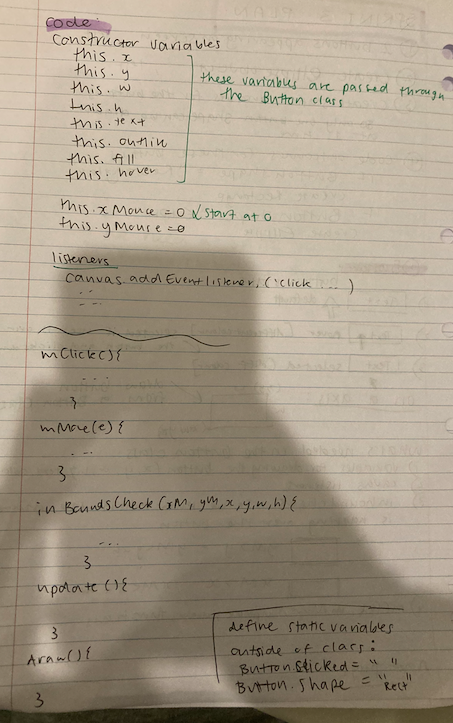 code:
Constructor variables
this.x
this.y
this.w
this.h
this.text
this.outlin
this.fill
this.hover
these variables are passed through
the Button class
this.xMouce = 0 & start at 0
this.yMouse = 0
listeners
canvas.addEventlistener, ('click ... )
mClick(){
...
}
mMove(e){
...
}
in BoundsCheck (xM, yM, x, y, w, h) {
...
}
update (){
}
draw(){
}
define static variables
outside of class:
Button.clicked = " "
Button.shape = "Rect"